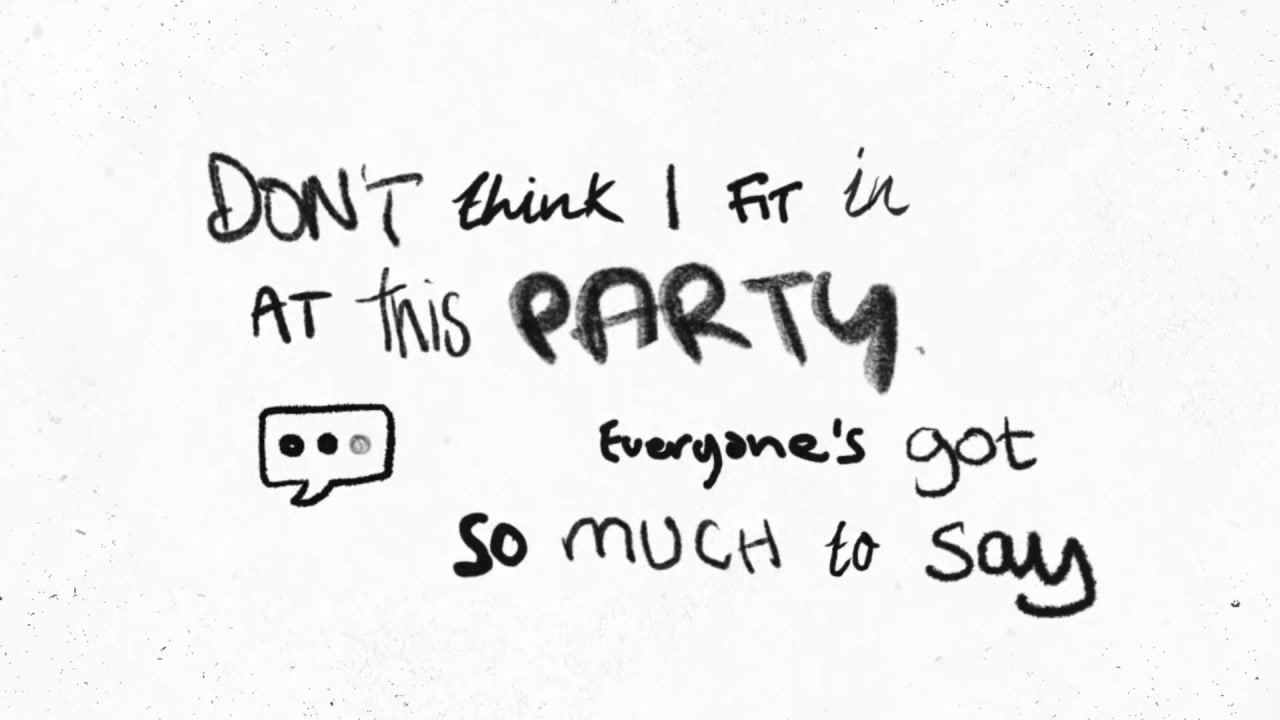 DON'T think I FiT in
AT this PARTY
Everyone's got
so mUCH to say